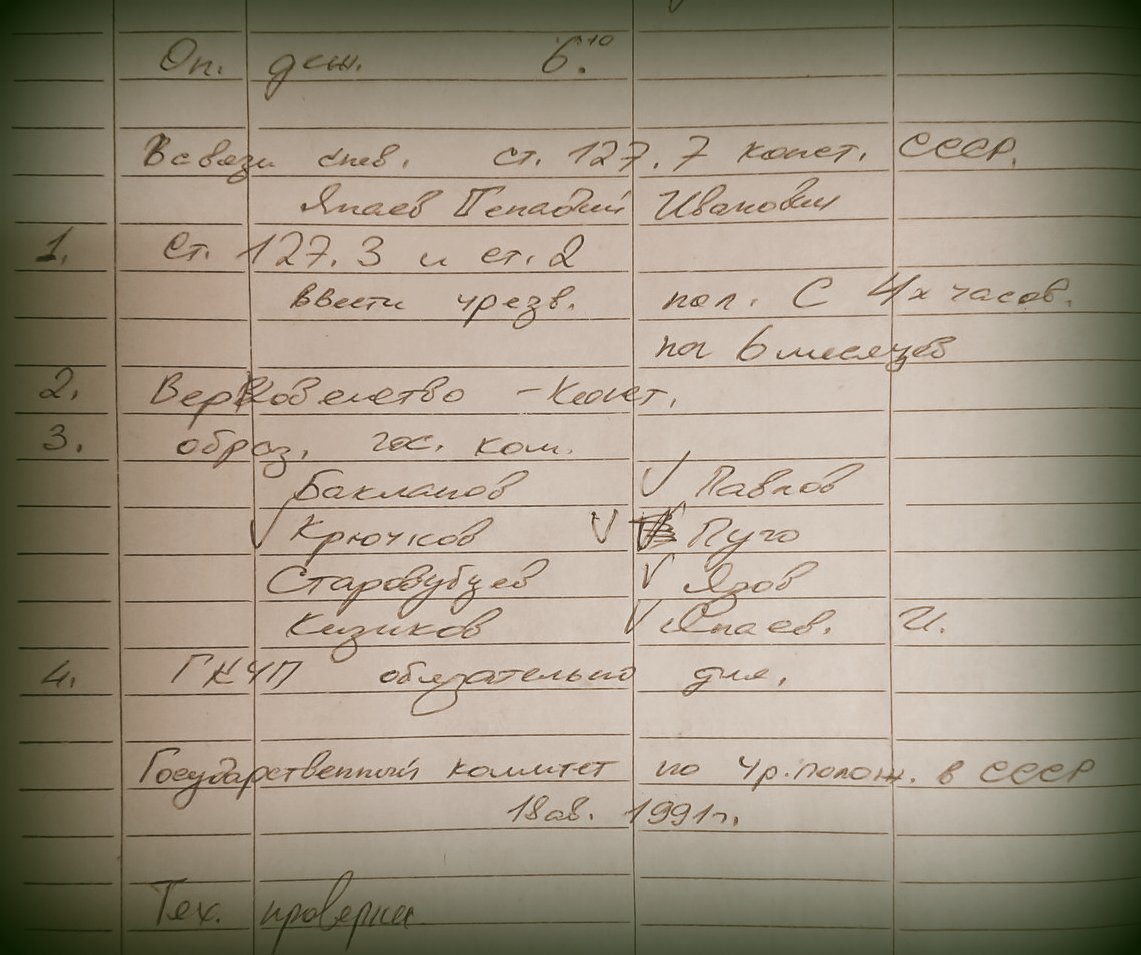 Оп. деж. 6.10
В связи с нев. ст. 127.7 конст. СССР.
Янаев Генадий Иванович
1. Ст. 127.3 и ст. 2
ввести чрезв. пол. С 4х часов.
на 6 месяцев
2. Верховенство - Конст.
3. образ. гос. ком.
Бакланов √ Павлов
√ Крючков √ √ Пуго
Стародубцев √ Язов
Тизяков √ Янаев. И.
4. ГКЧП обязательно для.
Государственный комитет по чр. полож. в СССР
18 ав. 1991 г.
Тех. проверка